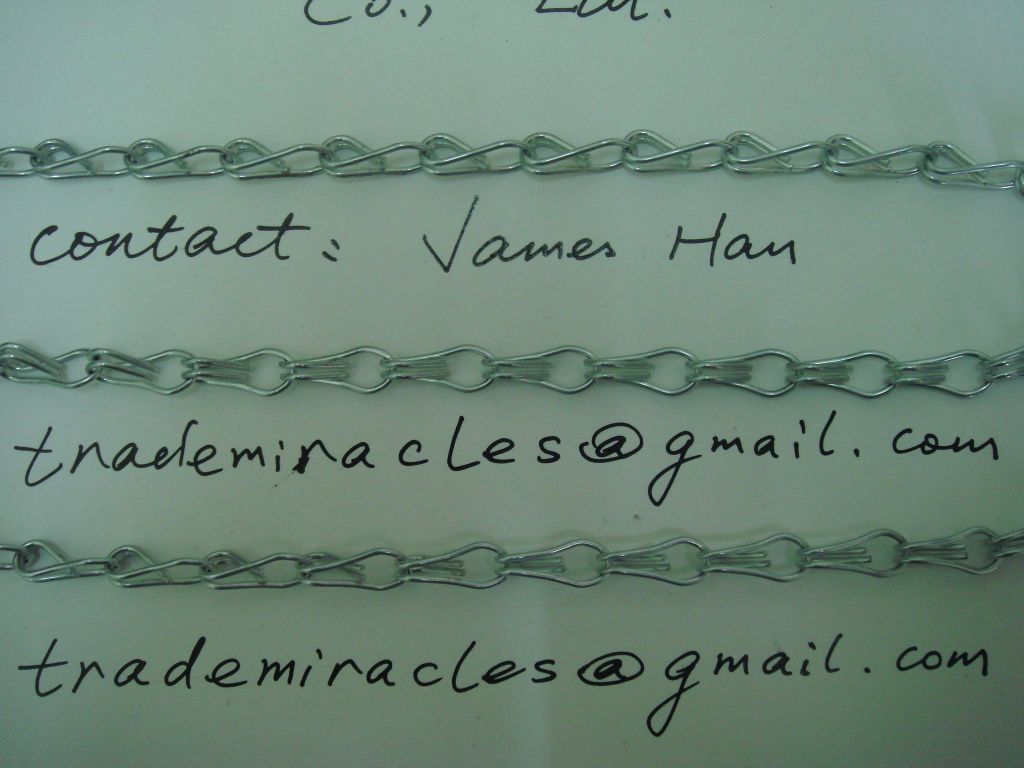 Co., Ltd.
contact: James Han
trademiracles@gmail.com
trademiracles@gmail.com